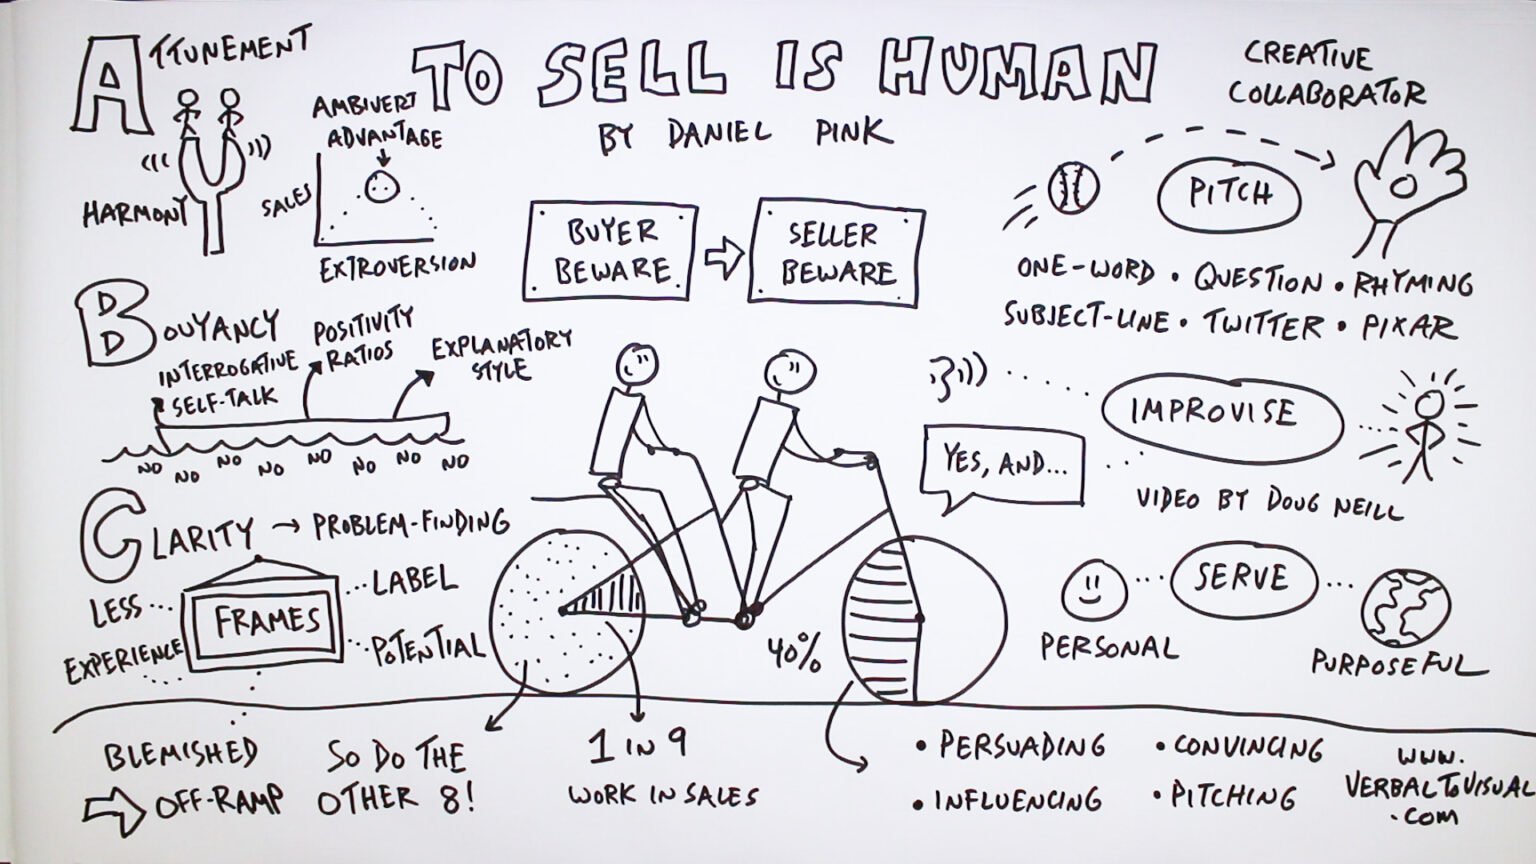 ATTUNEMENT
TO SELL IS HUMAN
BY DANIEL PINK
HARMONY
AMBIVERT
ADVANTAGE
SALES
EXTROVERSION
BUYER
BEWARE
SELLER
BEWARE
CREATIVE
COLLABORATOR
PITCH
ONE-WORD • QUESTION • RHYMING
SUBJECT-LINE • TWITTER • PIXAR
BOUYANCY
INTERROGATIVE
SELF-TALK
POSITIVITY
RATIOS
EXPLANATORY
STYLE
NO NO NO NO NO NO NO NO
IMPROVISE
YES, AND...
VIDEO BY DOUG NEILL
CLARITY → PROBLEM-FINDING
FRAMES
LESS
EXPERIENCE
LABEL
POTENTIAL
BLEMISHED
OFF-RAMP
SERVE
PERSONAL
PURPOSEFUL
40%
SO DO THE
OTHER 8!
1 IN 9
WORK IN SALES
• PERSUADING
• INFLUENCING
• CONVINCING
• PITCHING
WWW.
VERBALTOVISUAL
.COM